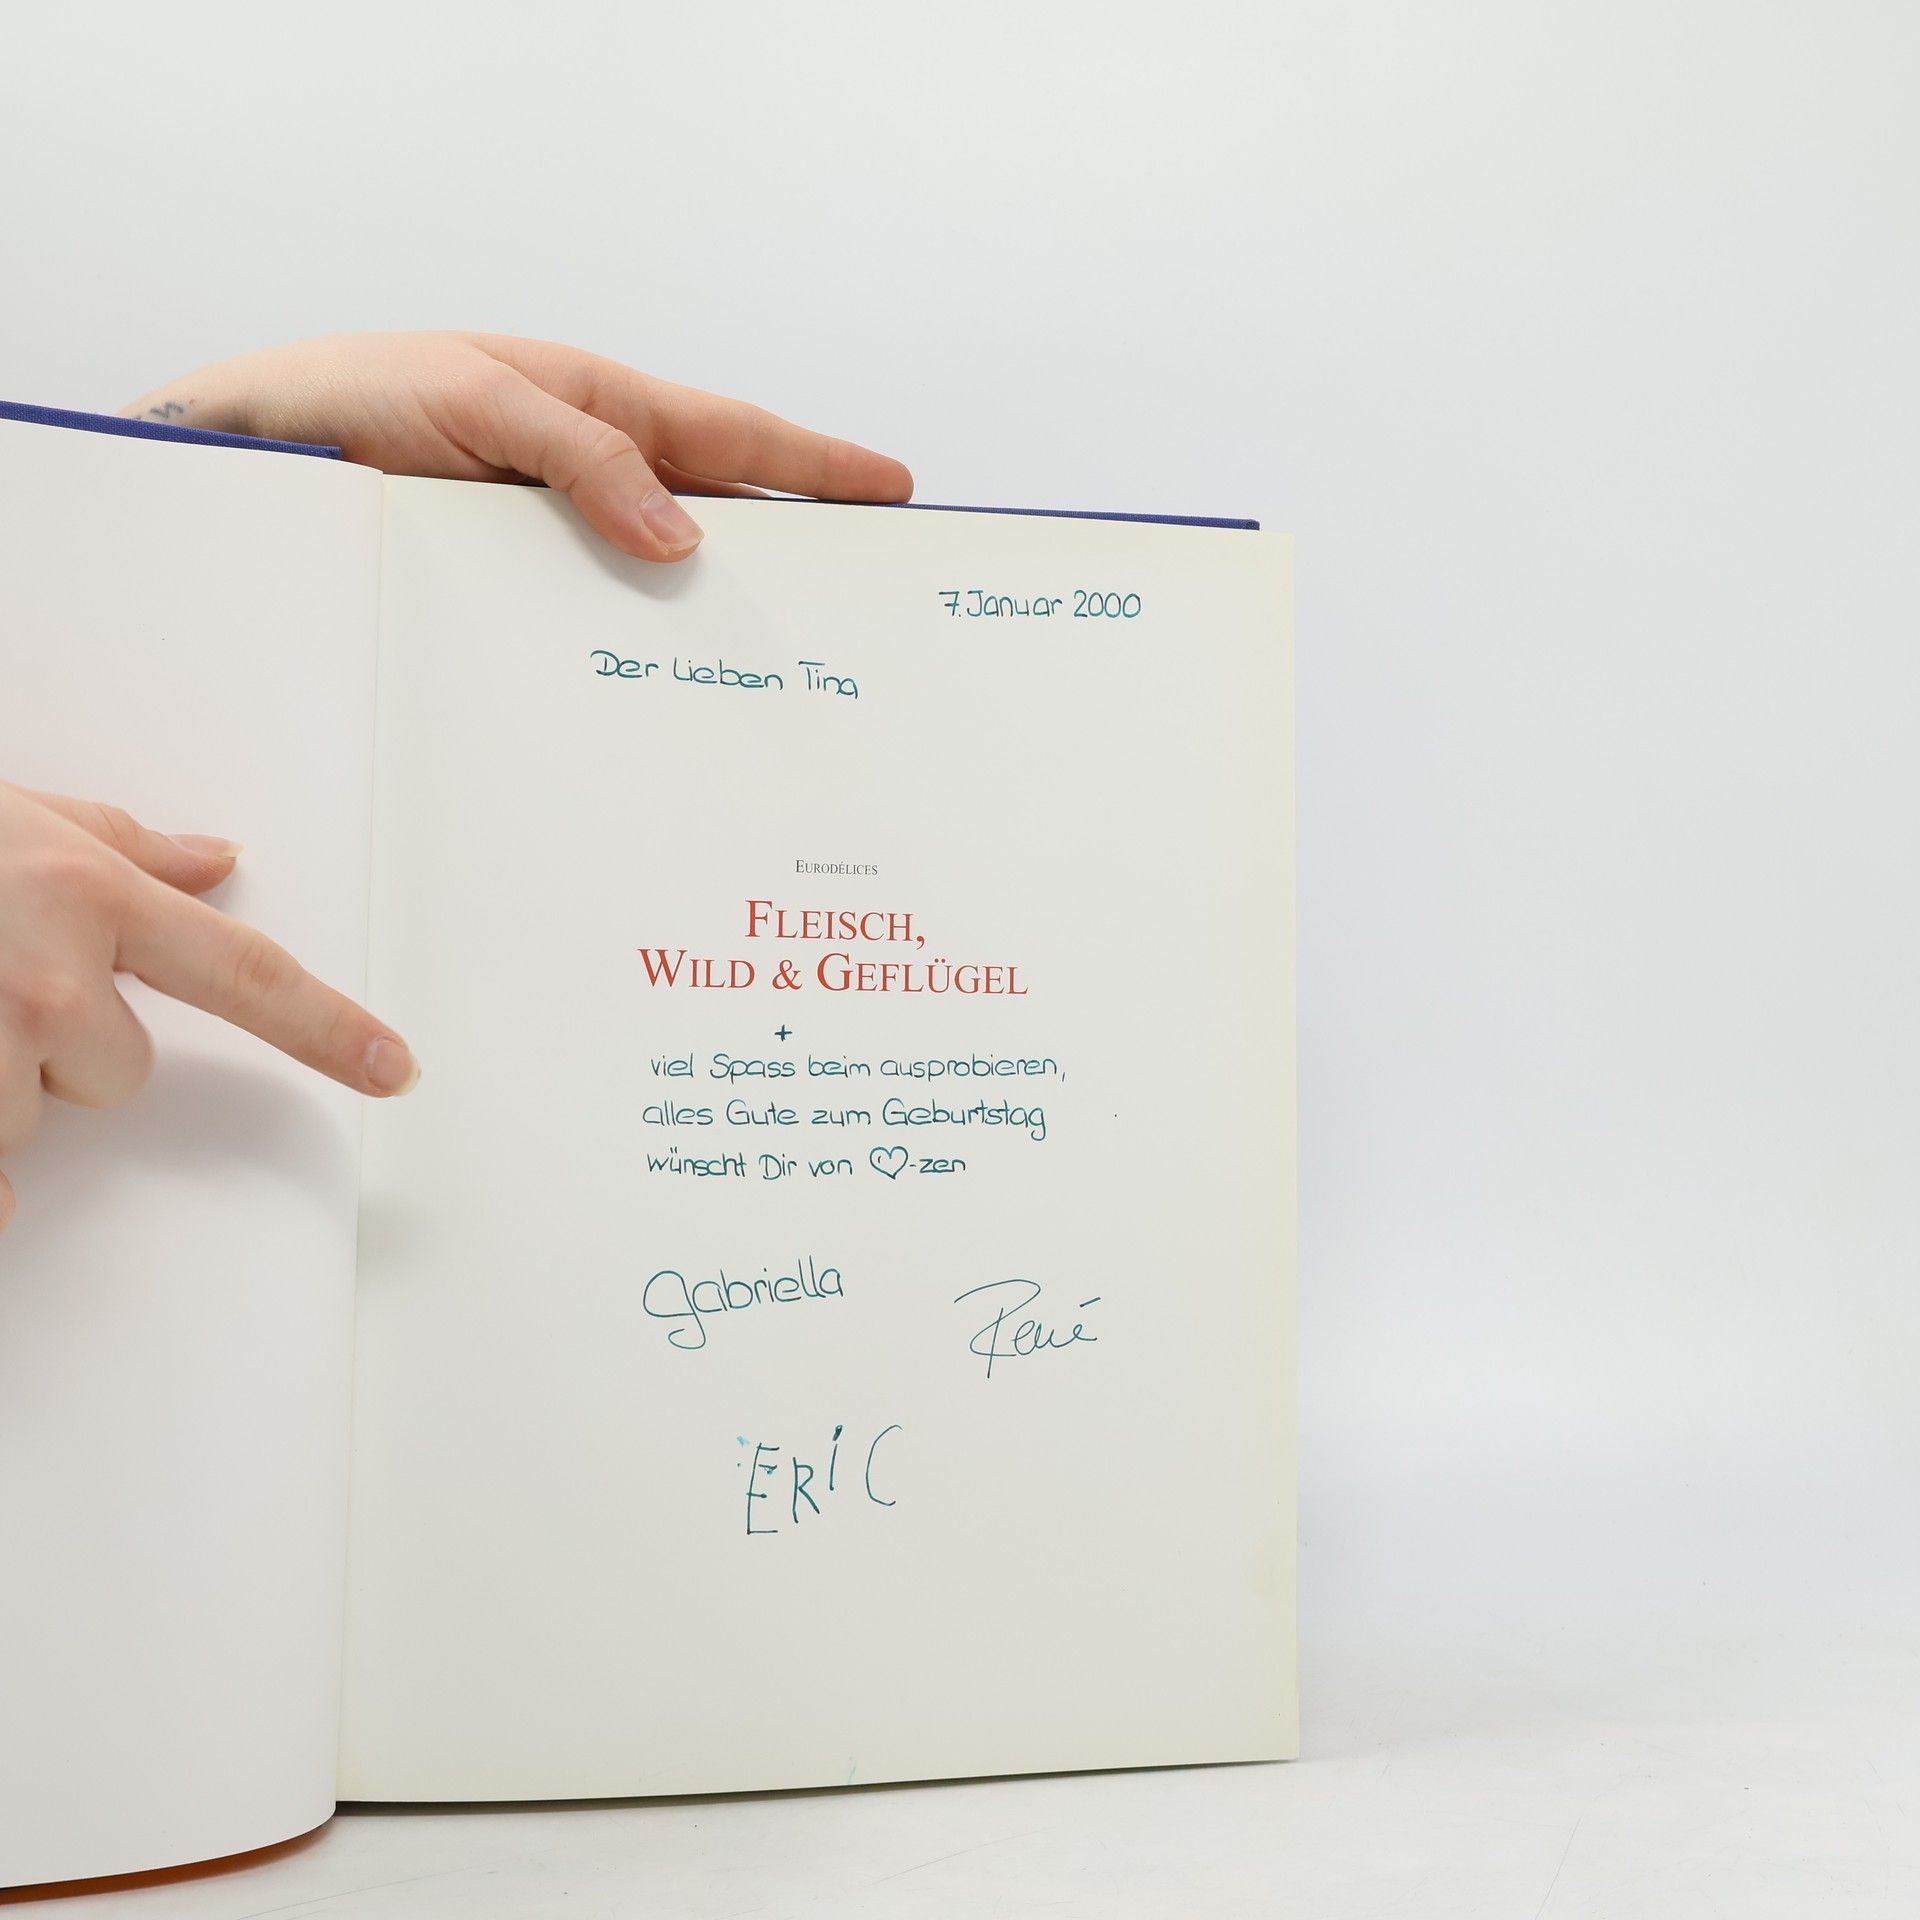 7. Januar 2000
Der Lieben Tina
EURODÉLICES
FLEISCH,
WILD & GEFLÜGEL
+
viel Spass beim ausprobieren,
alles Gute zum Geburtstag
wünscht Dir von ♡-zen
Gabriella
René
ERiC